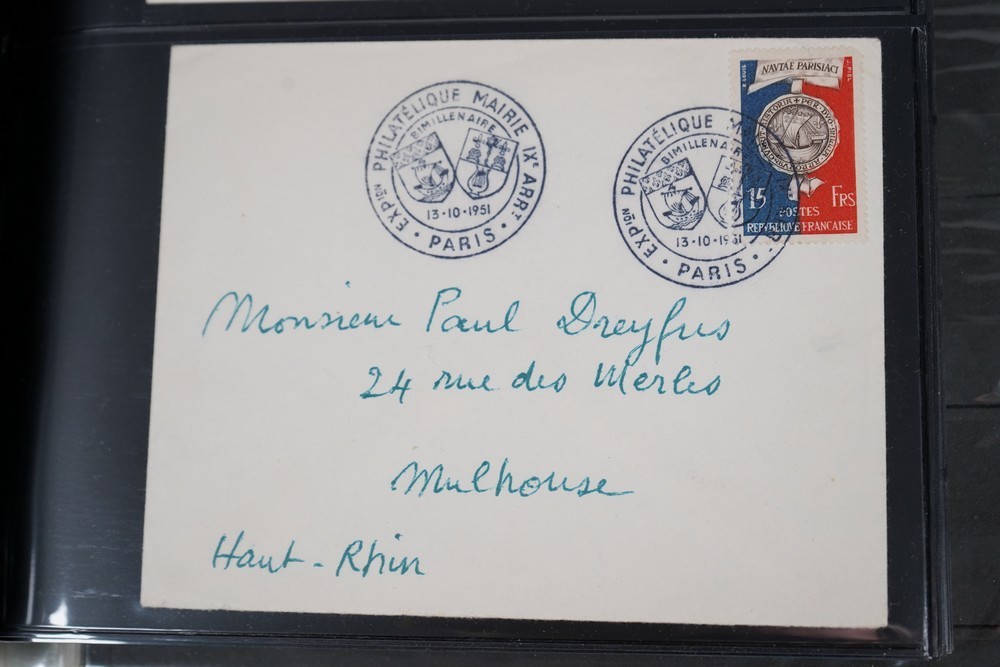 EXPᴵᴼᴺ PHILATÉLIQUE MAIRIE IXᴱ ARRᵀ
BIMILLENAIRE
13-10-1951
PARIS
EXPᴵᴼᴺ PHILATÉLIQUE
BIMILLENAIRE
13-10-1951
PARIS
NAVTAE PARISIACI
15 FRS
POSTES
REPVBLIQUE FRANCAISE
Monsieur Paul Dreyfus
24 rue des Merles
Mulhouse
Haut-Rhin